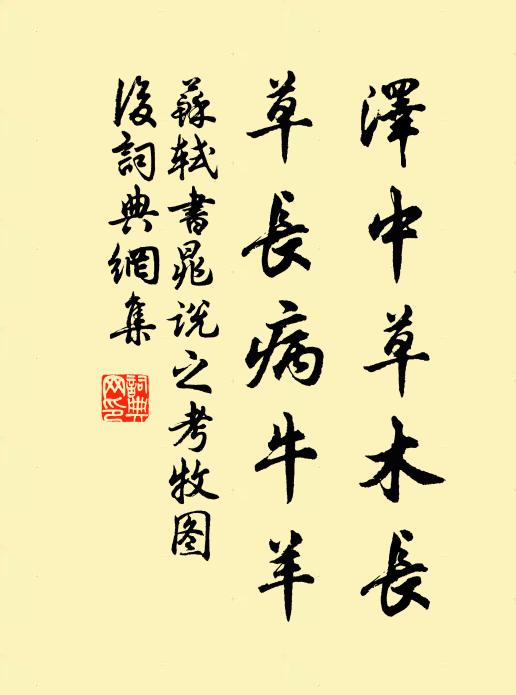 澤中草木長
草長病牛羊
蘇軾書晁說之考牧图
後詞典網集
詞典
网印